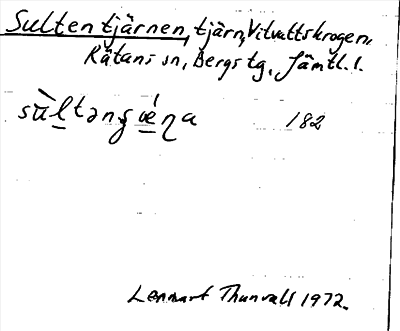 Sultentjärnen, tjärn, Vitvattskrogen,
Rätans sn, Bergs tg, Jämtl. l.
sùltənʂǽɳa 182
Lennart Thunvall 1972.